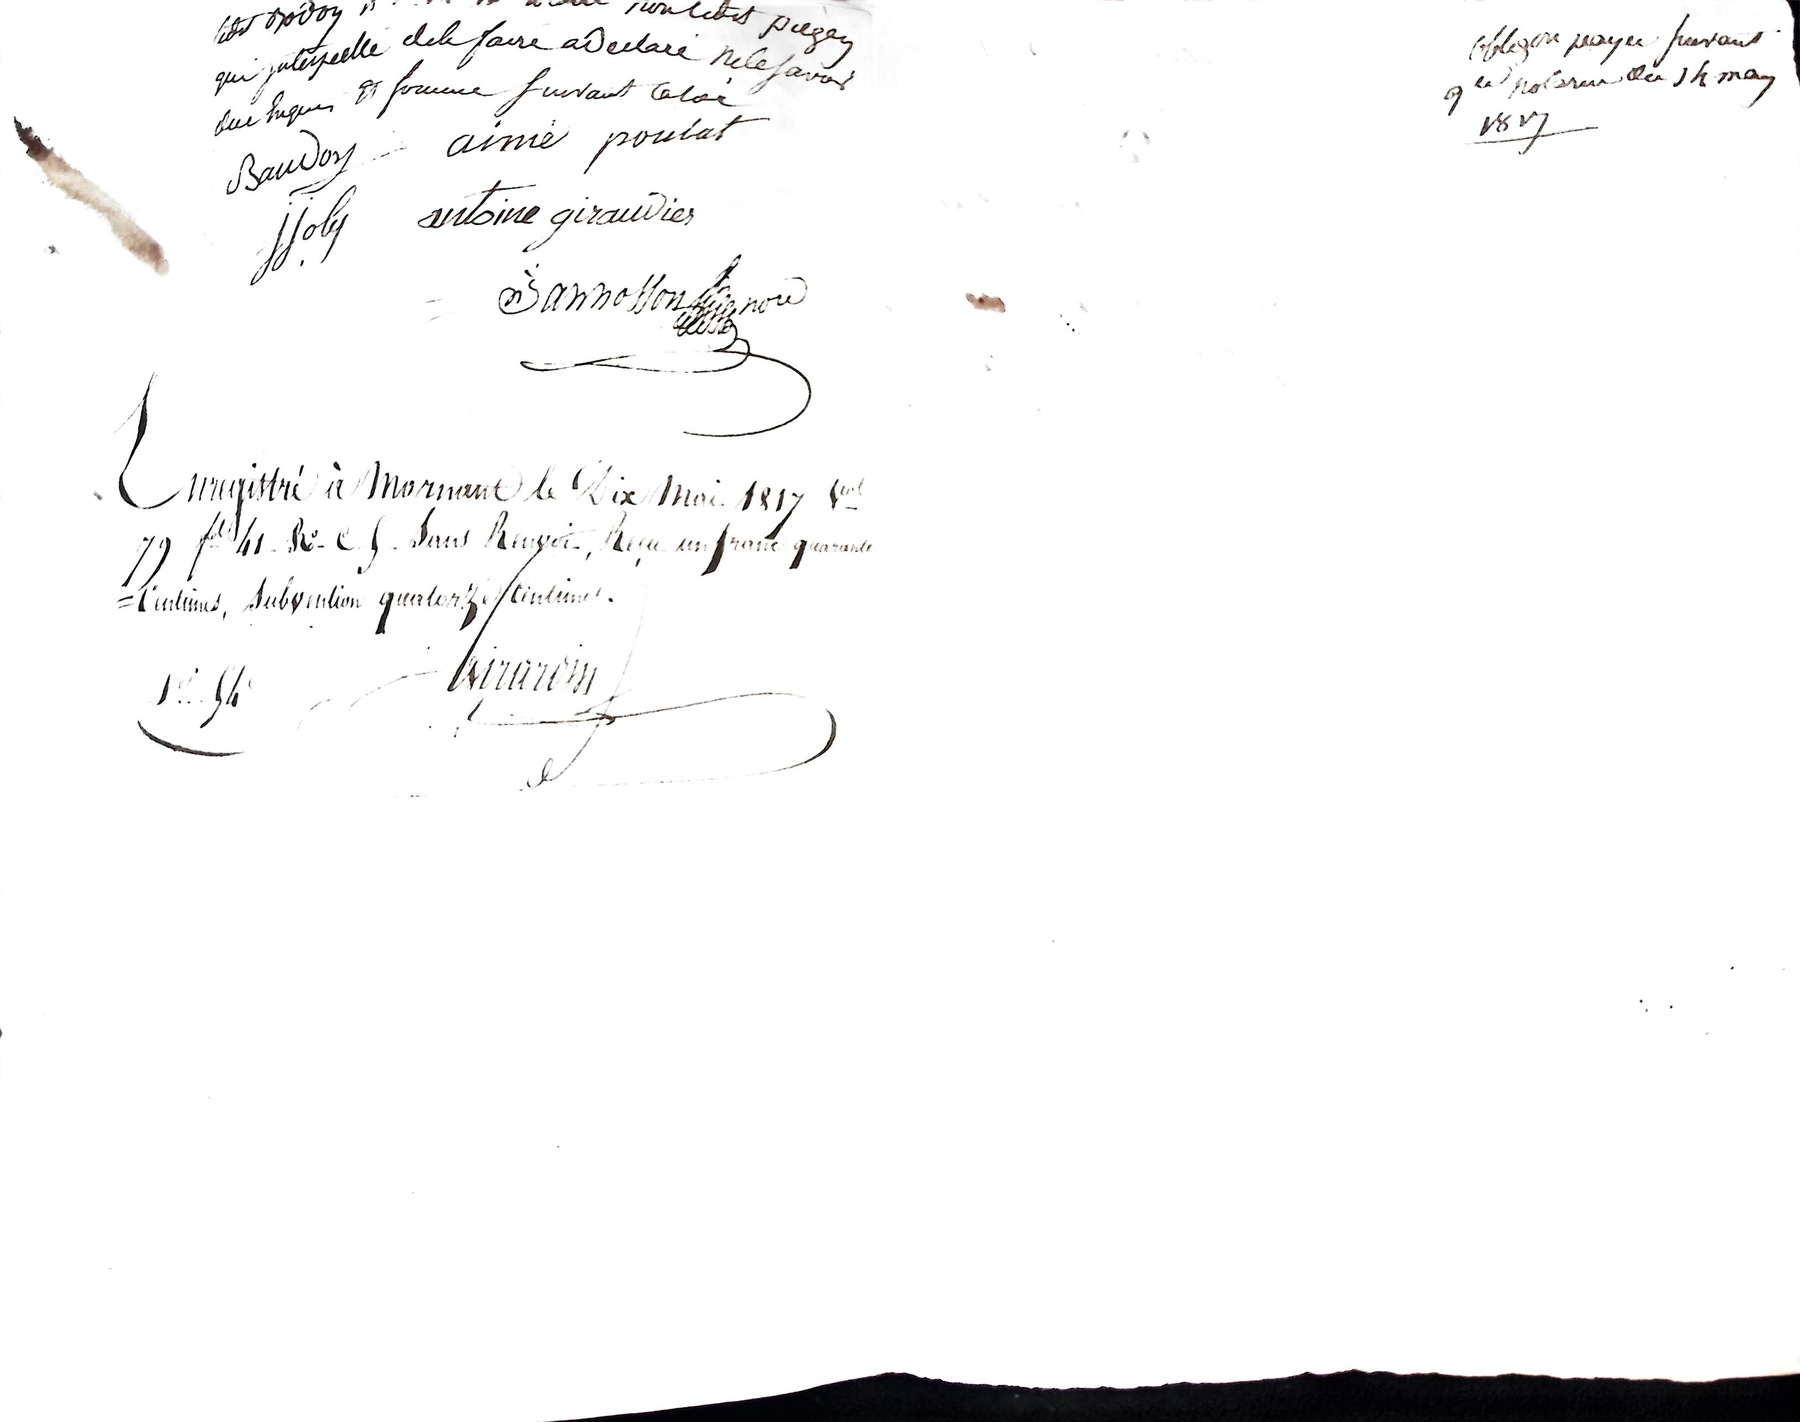 qui interpellé de le faire a Declaré ne le savoir
due Enquis et somme suivant la loi
Baudoy aimé poulat
JJoly antoine giraudier
Jannosson nore
Enregistré à Mornant le Dix Mai 1817 Vol
79 fol 41 Ro. C. 5. Sans Renvoi, Reçu un franc quarante
= Centimes, Subvention quatorze Centimes.
1f. 54c
Girardin
obligon payee suivant
qce notariee du 14 may
1817